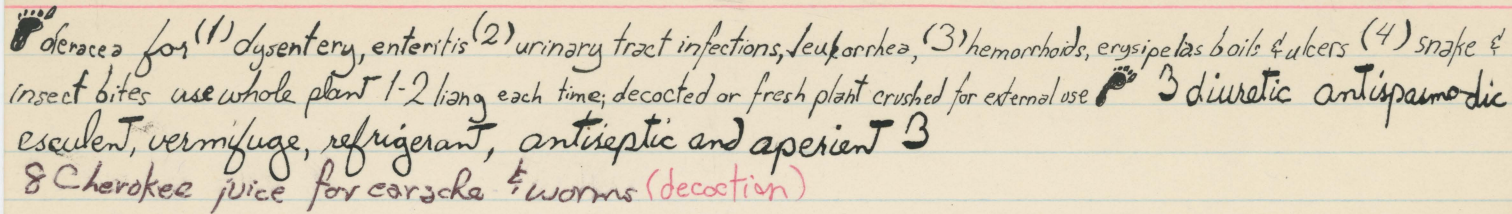 P oleracea for (1) dysentery, enteritis (2) urinary tract infections, leukorrhea, (3) hemorrhoids, erysipelas boils & ulcers (4) snake &
insect bites use whole plant 1-2 liang each time; decocted or fresh plant crushed for external use 3 diuretic antispasmodic
esculent, vermifuge, refrigerant, antiseptic and aperient 3
8 Cherokee juice for earache & worms (decoction)